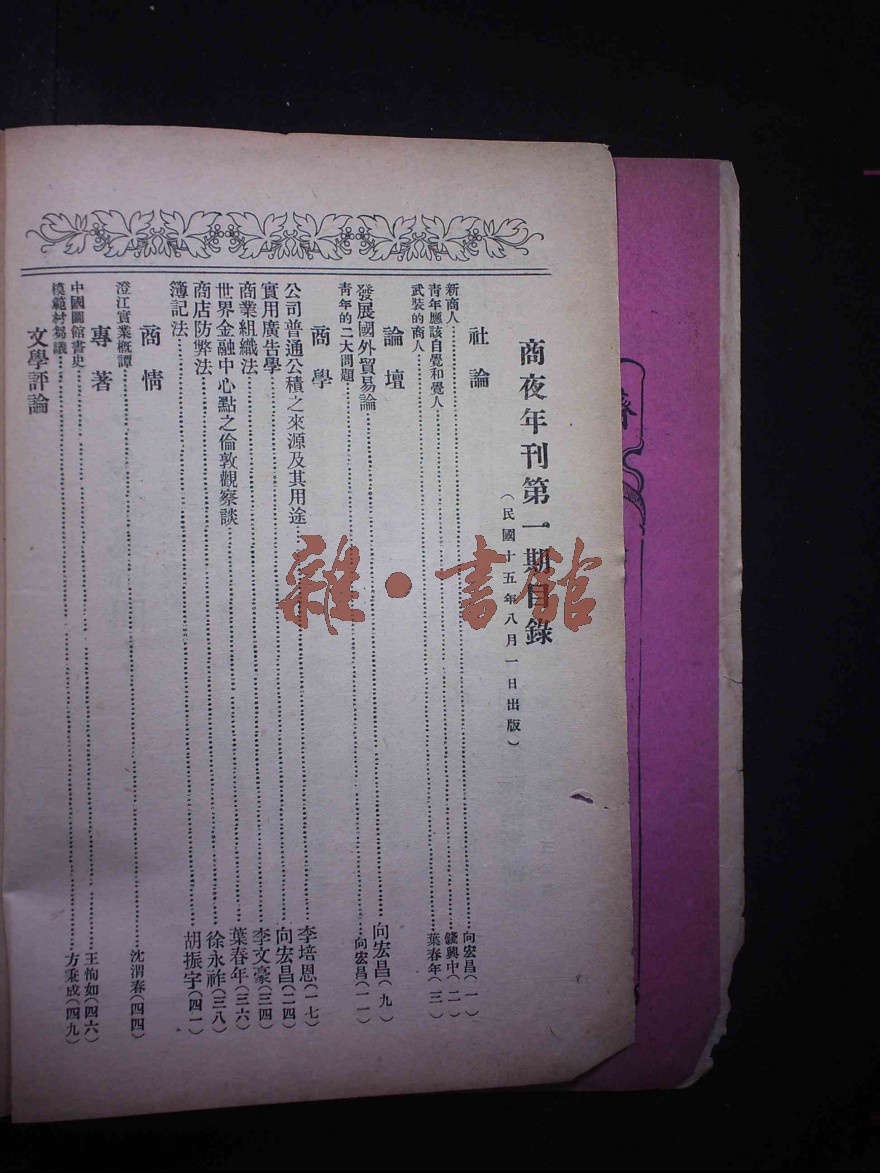 商夜年刊第一期目錄
（民國十五年八月一日出版）
社論
新商人……向宏昌（一）
青年應該自覺和覺人……錢興中（二）
武裝的商人……葉春年（三）
論壇
發展國外貿易論……向宏昌（九）
青年的二大問題……向宏昌（一一）
商學
公司普通公積之來源及其用途……李培恩（一七）
實用廣告學……向宏昌（二四）
商業組織法……李文豪（三四）
世界金融中心點之倫敦觀察談……葉春年（三六）
商店防弊法……徐永祚（三八）
簿記法……胡振宇（四一）
商情
澄江實業概譚……沈渭春（四四）
專著
中國圖館書史……王恂如（四六）
模範村芻議……方秉成（四九）
文學評論
雜·書館